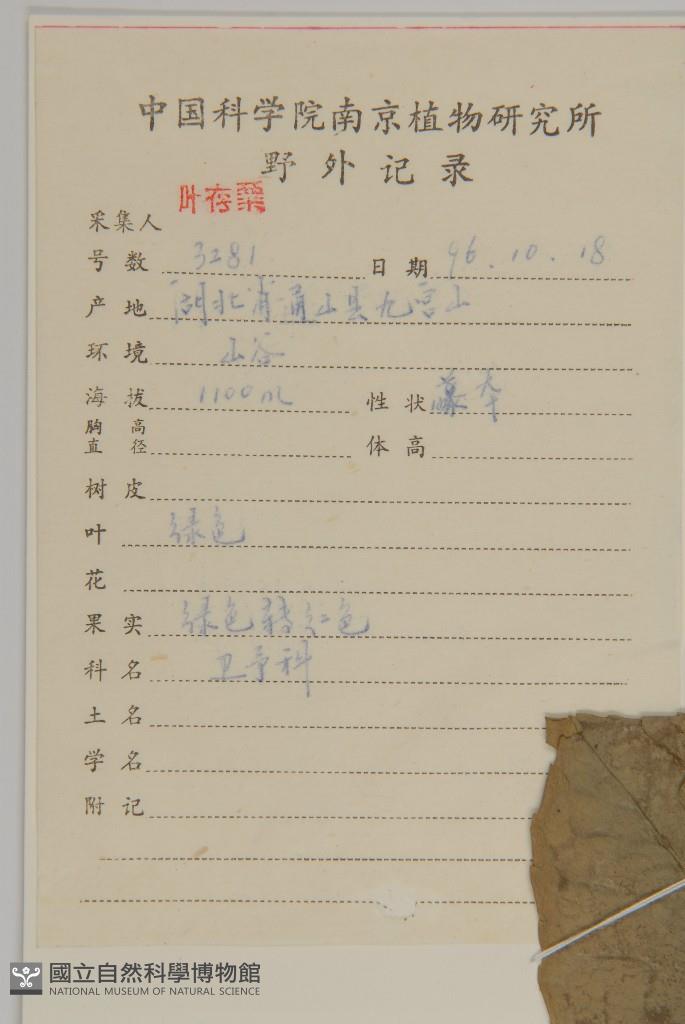 中国科学院南京植物研究所
野外记录
叶存粟
采集人
号数 3281 日期 96.10.18
产地 湖北省通山县九宫山
环境 山谷
海拔 1100m 性状 藤本
胸高直径 体高
树皮
叶 绿色
花
果实 绿色转红色
科名 卫矛科
土名
学名
附记
國立自然科學博物館
NATIONAL MUSEUM OF NATURAL SCIENCE